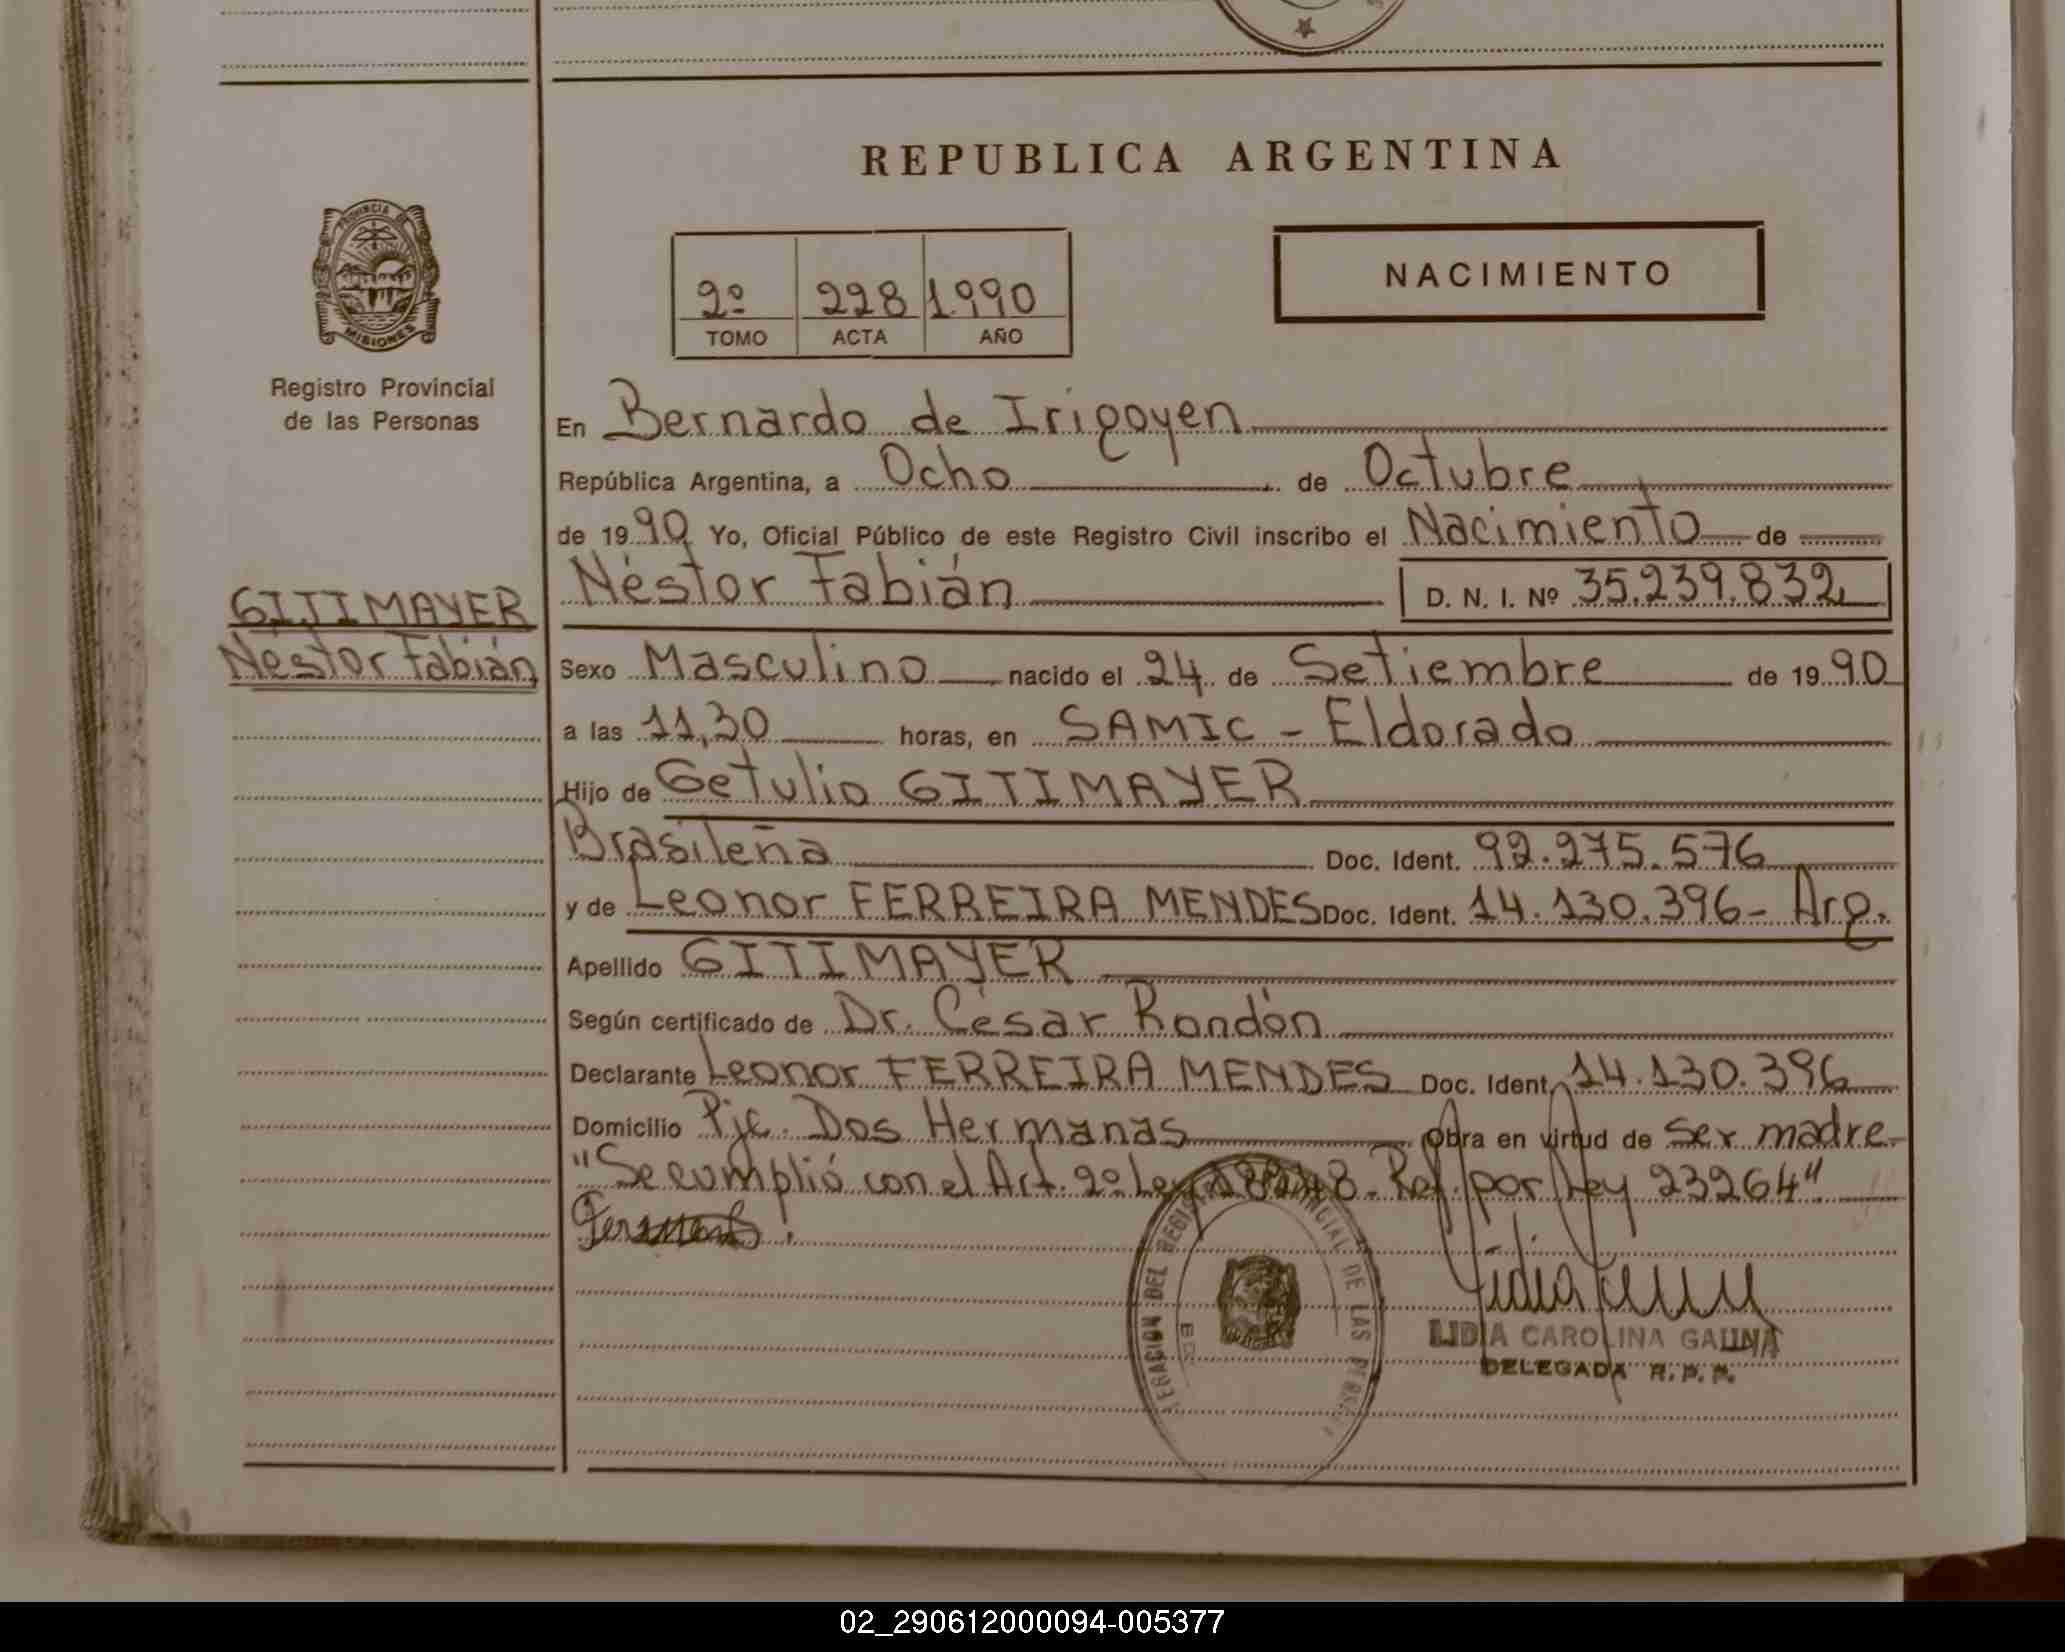 REPUBLICA ARGENTINA
PROVINCIA DE MISIONES
Registro Provincial
de las Personas
2º 228 1.990
TOMO ACTA AÑO
NACIMIENTO
En Bernardo de Irigoyen
República Argentina, a Ocho de Octubre
de 1990 Yo, Oficial Público de este Registro Civil inscribo el Nacimiento de
Néstor Fabián D. N. I. Nº 35.239.832
GITIMAYER
Néstor Fabián
Sexo Masculino nacido el 24 de Setiembre de 1990
a las 11,30 horas, en SAMIC - Eldorado
Hijo de Getulio GITIMAYER
Brasileña Doc. Ident. 92.275.576
y de Leonor FERREIRA MENDES Doc. Ident. 14.130.396- Arg.
Apellido GITIMAYER
Según certificado de Dr. César Rondón
Declarante Leonor FERREIRA MENDES Doc. Ident. 14.130.396
Domicilio Pje. Dos Hermanas Obra en virtud de ser madre
"Se cumplió con el Art. 2º Ley 18248. Ref. por Ley 23264"
DEL REGISTRO PROVINCIAL DE LAS
LIDIA CAROLINA GAUNA
DELEGADA R.P.P.
02_290612000094-005377